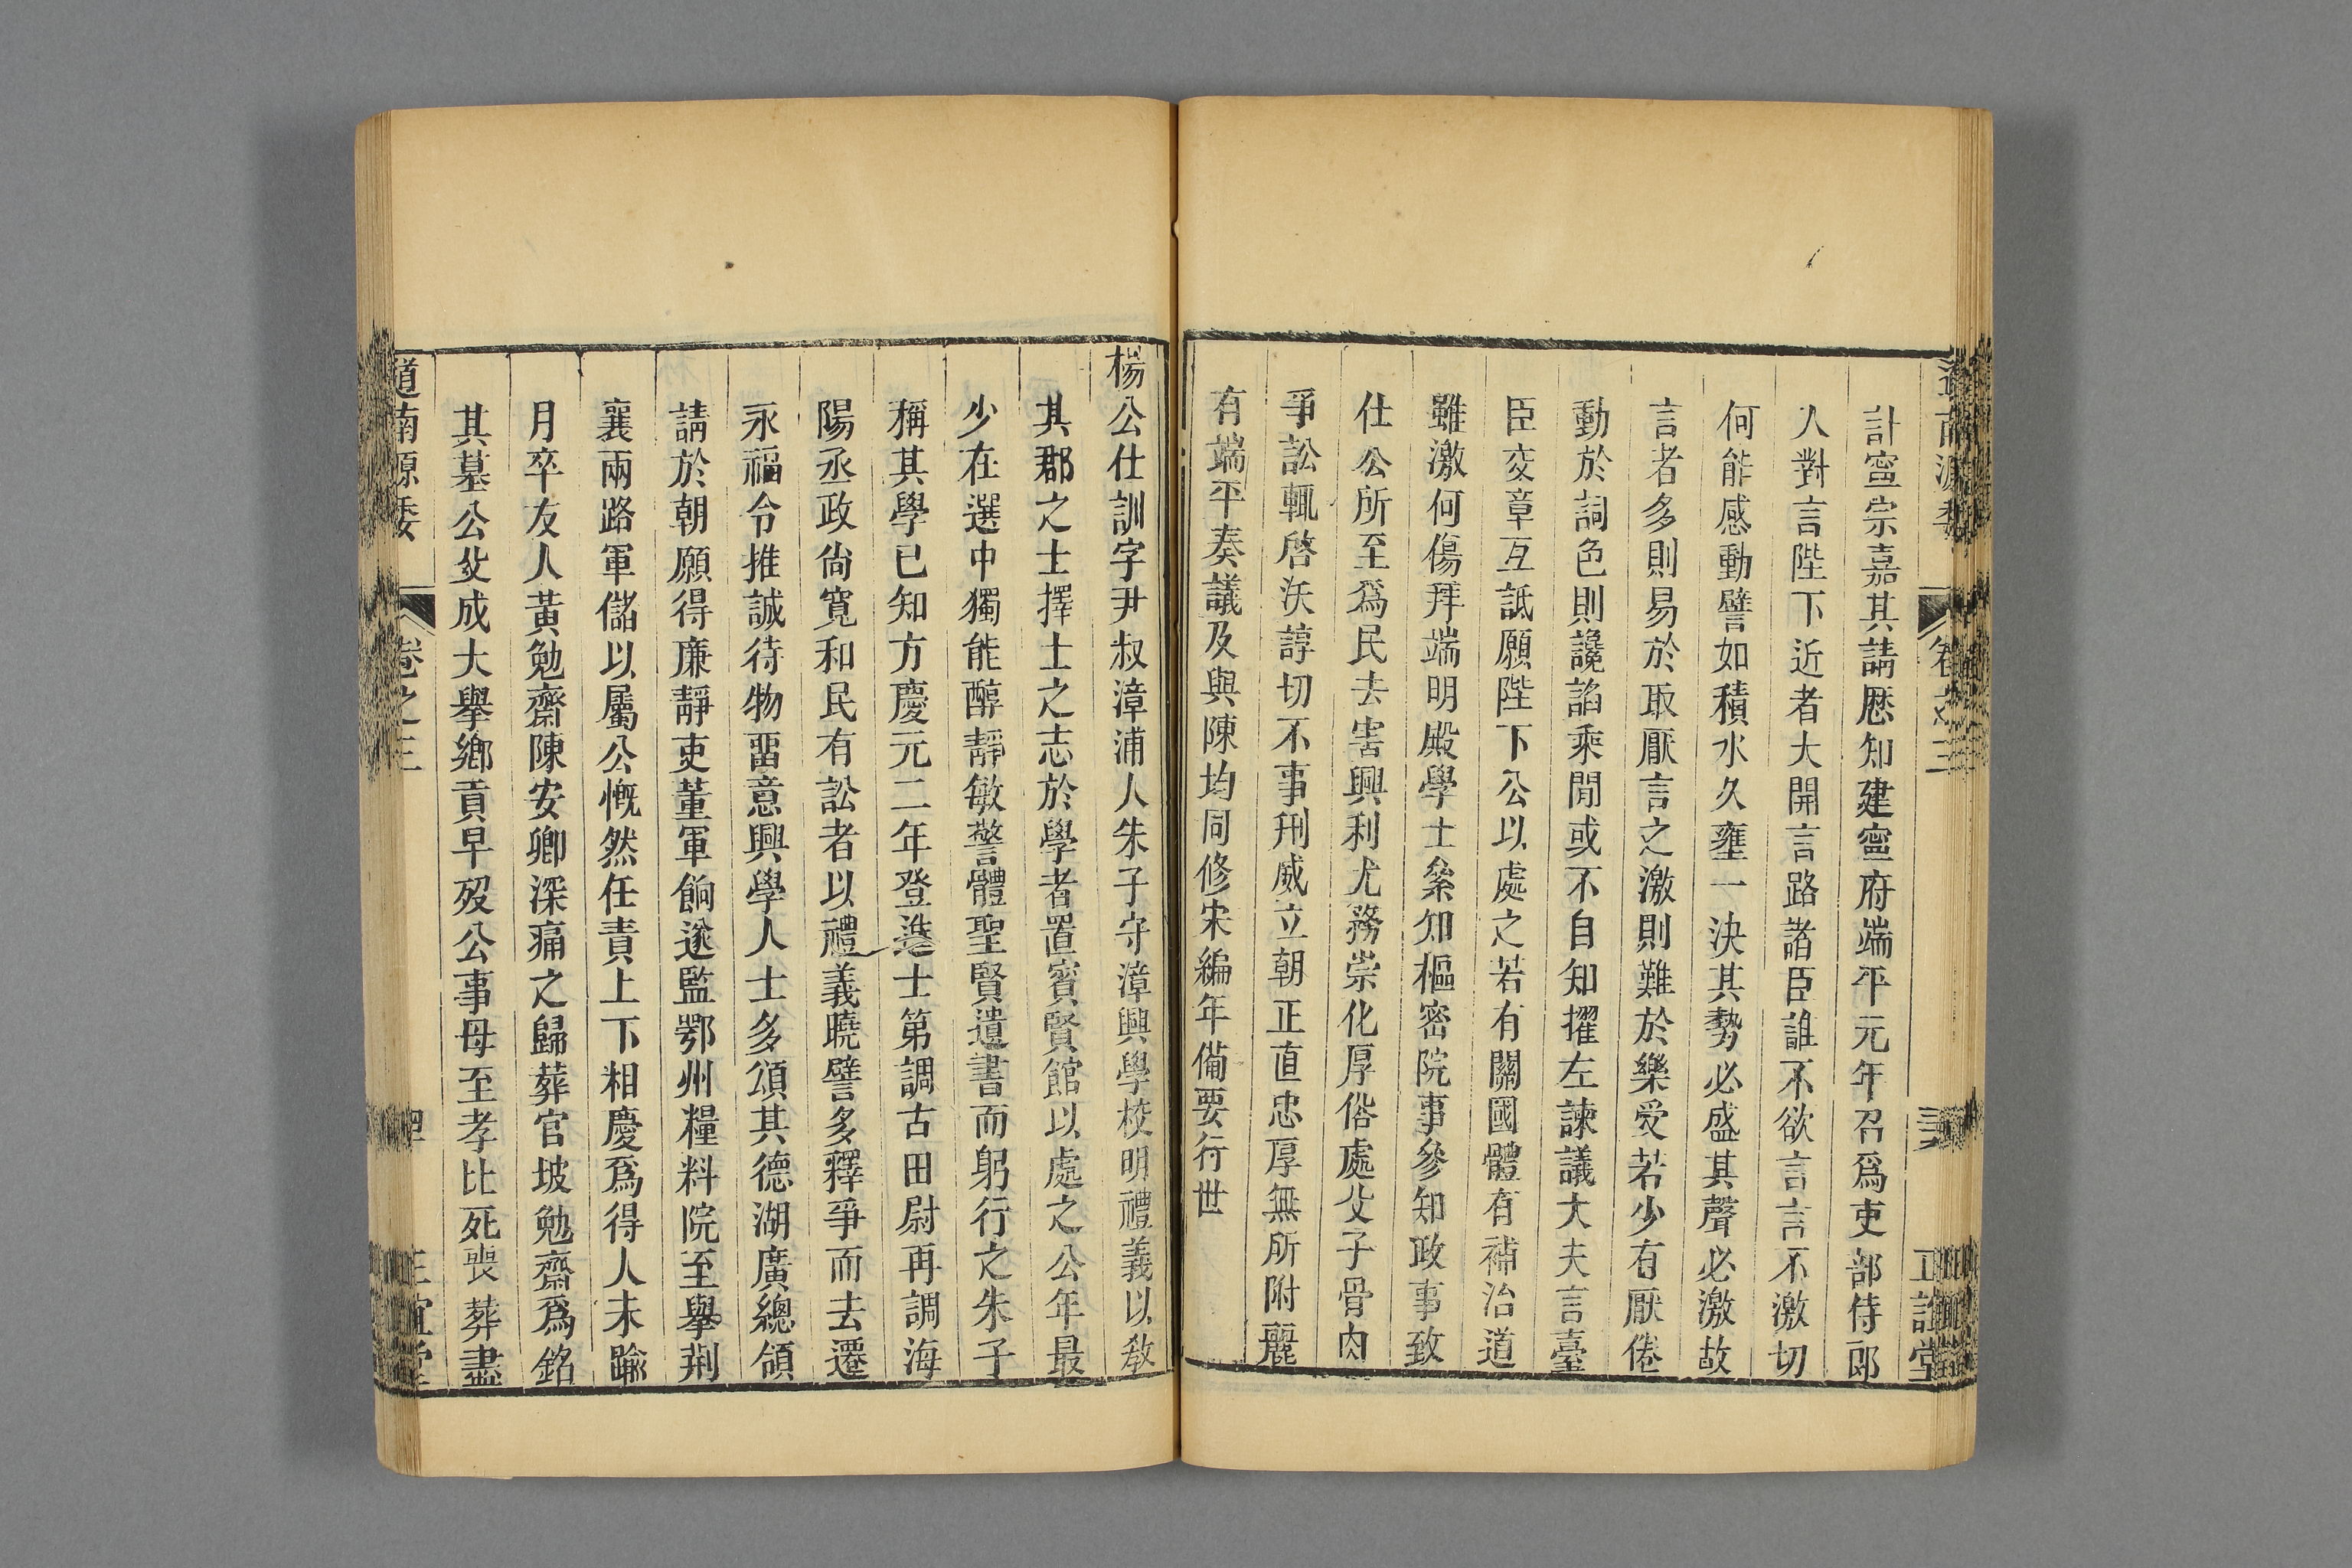 計寍宗嘉其請歷知建寍府端平元年召爲吏部侍郎
入對言陛下近者大開言路諸臣誰不欲言言不激切
何能感動譬如積水久壅一決其勢必盛其聲必激故
言者多則易於取厭言之激則難於樂受若少有厭倦
動於詞色則讒諂乘閒或不自知擢左諫議大夫言臺
臣交章互詆願陛下公以處之若有關國體有補治道
雖激何傷拜端明殿學士僉知樞密院事參知政事致
仕公所至爲民去害興利尤務崇化厚俗處父子骨肉
爭訟輒啓沃諄切不事刑威立朝正直忠厚無所附麗
有端平奏議及與陳均同修宋編年備要行世
楊公仕訓字尹叔漳浦人朱子守漳興學校明禮義以敎
其郡之士擇士之志於學者置賓賢館以處之公年最
少在選中獨能醇靜敏警體聖賢遺書而躬行之朱子
稱其學已知方慶元二年登進士第調古田尉再調海
陽丞政尙寬和民有訟者以禮義曉譬多釋爭而去遷
永福令推誠待物畱意興學人士多頌其德湖廣總領
請於朝願得廉靜吏董軍餉遂監鄂州糧料院至舉荆
襄兩路軍儲以屬公慨然任責上下相慶爲得人未踰
月卒友人黃勉齋陳安卿深痛之歸葬官坡勉齋爲銘
其墓公父成大舉鄉貢早歿公事母至孝比死喪葬盡
道南源委 卷之三